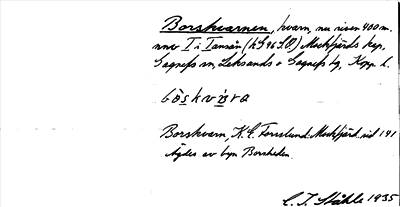 Borskvarnen, kvarn, nu riven 400 m.
nnv T i Tansån (hS 96 SO) Mockfjärds kap,
Gagnefs sn, Leksands o Gagnefs tg, Kopp. l.
bòskvàra
Borskvarn, K. E. Forsslund Mockfjärd sid 141
Ägdes av byn Borsheden.
C. I. Ståhle 1935